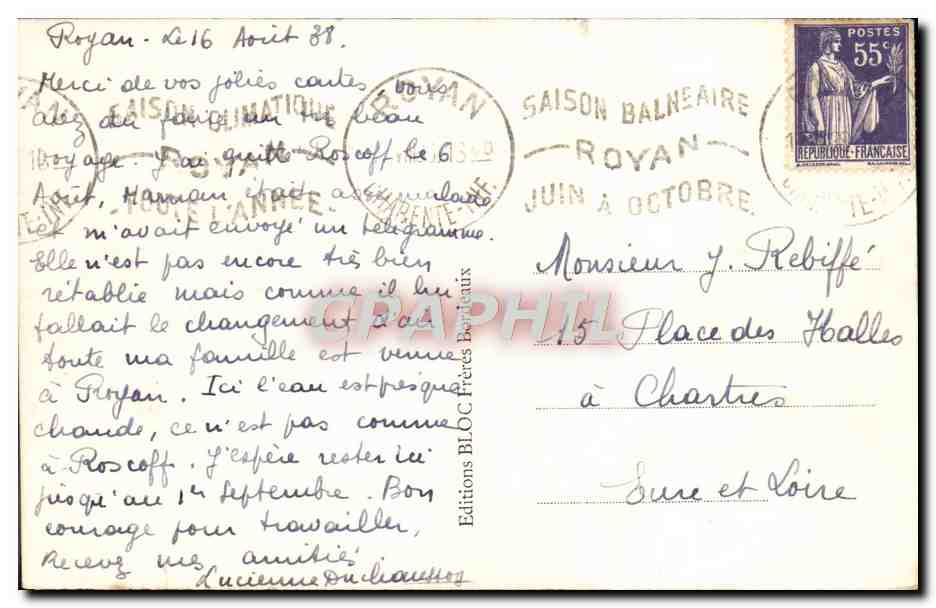 Royan - Le 16 Août 38.
Merci de vos jolies cartes, vous
avez du faire un très beau
voyage. J'ai quitté Roscoff le 6
Août, Maman était assez malade
et m'avait envoyé un télégramme.
Elle n'est pas encore très bien
rétablie mais comme il lui
fallait le changement d'air
toute ma famille est venue
à Royan. Ici l'eau est presque
chaude, ce n'est pas comme
à Roscoff. J'espère rester ici
jusqu'au 1er Septembre. Bon
courage pour travailler,
Recevez mes amitiés.
Lucienne
SAISON CLIMATIQUE
ROYAN
TOUTE L'ANNEE
ROYAN
CHARENTE-INF.
SAISON BALNEAIRE
ROYAN
JUIN À OCTOBRE
POSTES
55c
REPUBLIQUE-FRANÇAISE
Monsieur J. Rebiffé
15 Place des Halles
à Chartres
Eure et Loire
Editions BLOC Frères Bordeaux
CPAPHIL